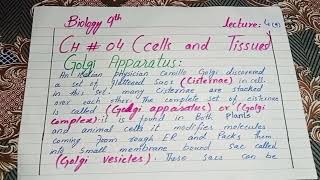 Biology 9th
lecture: 4(9)
CH # 04 (cells and Tissues)
Golgi Apparatus:
An italian physician camillo Golgi discovered
a set of flattened Sacs (Cisternae) in cell.
in this set, many Cisternae are stacked
over each other. The complete set of cisternae
is called (Golgi apparatus) or (Golgi
complex) it is found in Both plants
and animal cells it modifies molecules
coming from rough ER and Packs them
into Small membrane bound sac called
(Golgi vesicles). These sacs can be